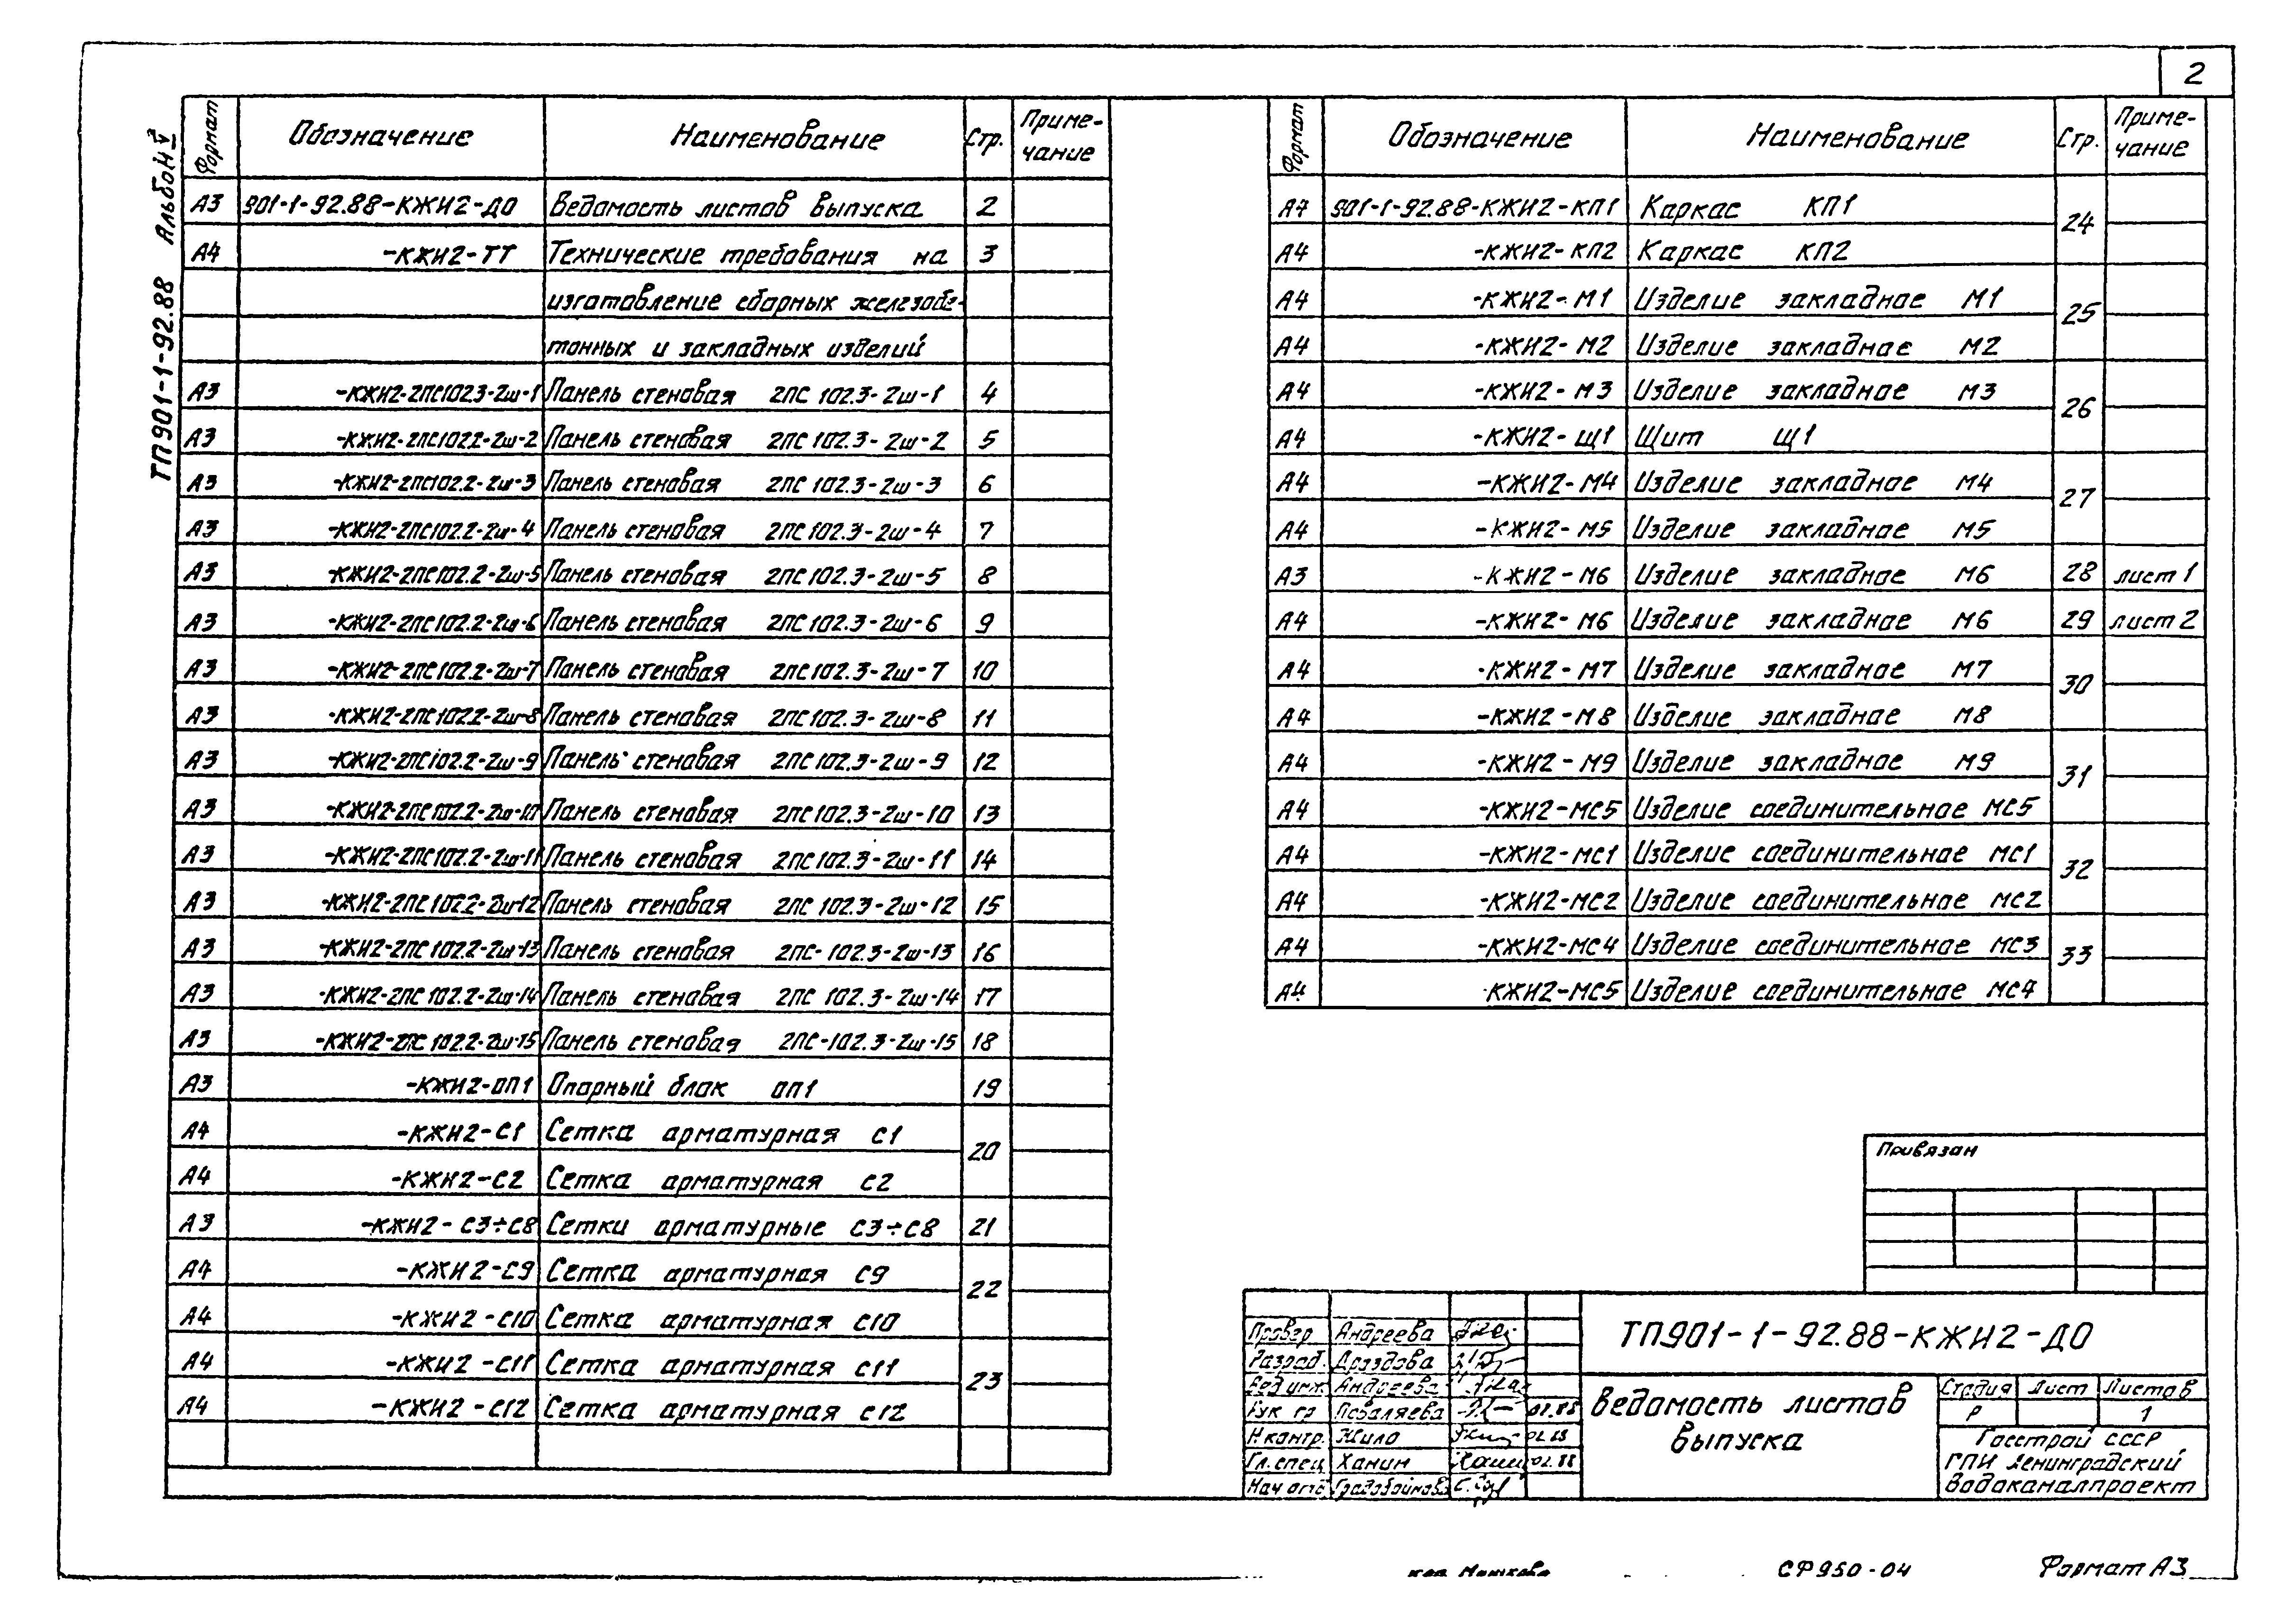 2
ТП901-1-92.88 Альбом V
Формат Обозначение Наименование Стр. Приме-
чание
А3 901-1-92.88-КЖИ2-ДО Ведомость листов выпуска 2
А4 -КЖИ2-ТТ Технические требования на 3
изготовление сборных железобе-
тонных и закладных изделий
А3 -КЖИ2-2ПС102.3-2ш-1 Панель стеновая 2ПС 102.3-2ш-1 4
А3 -КЖИ2-2ПС102.2-2ш-2 Панель стеновая 2ПС 102.3-2ш-2 5
А3 -КЖИ2-2ПС102.2-2ш-3 Панель стеновая 2ПС 102.3-2ш-3 6
А3 -КЖИ2-2ПС102.2-2ш-4 Панель стеновая 2ПС 102.3-2ш-4 7
А3 -КЖИ2-2ПС102.2-2ш-5 Панель стеновая 2ПС 102.3-2ш-5 8
А3 -КЖИ2-2ПС102.2-2ш-6 Панель стеновая 2ПС 102.3-2ш-6 9
А3 -КЖИ2-2ПС102.2-2ш-7 Панель стеновая 2ПС 102.3-2ш-7 10
А3 -КЖИ2-2ПС102.2-2ш-8 Панель стеновая 2ПС 102.3-2ш-8 11
А3 -КЖИ2-2ПС102.2-2ш-9 Панель стеновая 2ПС 102.3-2ш-9 12
А3 -КЖИ2-2ПС102.2-2ш-10 Панель стеновая 2ПС 102.3-2ш-10 13
А3 -КЖИ2-2ПС102.2-2ш-11 Панель стеновая 2ПС 102.3-2ш-11 14
А3 -КЖИ2-2ПС102.2-2ш-12 Панель стеновая 2ПС 102.3-2ш-12 15
А3 -КЖИ2-2ПС102.2-2ш-13 Панель стеновая 2ПС-102.3-2ш-13 16
А3 -КЖИ2-2ПС102.2-2ш-14 Панель стеновая 2ПС 102.3-2ш-14 17
А3 -КЖИ2-2ПС102.2-2ш-15 Панель стеновая 2ПС-102.3-2ш-15 18
А3 -КЖИ2-ОП1 Опорный блок оп1 19
А4 -КЖИ2-С1 Сетка арматурная С1 20
А4 -КЖИ2-С2 Сетка арматурная С2
А3 -КЖИ2-С3÷С8 Сетки арматурные С3÷С8 21
А4 -КЖИ2-С9 Сетка арматурная С9 22
А4 -КЖИ2-С10 Сетка арматурная С10
А4 -КЖИ2-С11 Сетка арматурная С11 23
А4 -КЖИ2-С12 Сетка арматурная С12
Формат Обозначение Наименование Стр. Приме-
чание
А4 901-1-92.88-КЖИ2-КП1 Каркас КП1 24
А4 -КЖИ2-КП2 Каркас КП2
А4 -КЖИ2-М1 Изделие закладное М1 25
А4 -КЖИ2-М2 Изделие закладное М2
А4 -КЖИ2-М3 Изделие закладное М3 26
А4 -КЖИ2-Щ1 Щит Щ1
А4 -КЖИ2-М4 Изделие закладное М4 27
А4 -КЖИ2-М5 Изделие закладное М5
А3 -КЖИ2-М6 Изделие закладное М6 28 лист 1
А4 -КЖИ2-М6 Изделие закладное М6 29 лист 2
А4 -КЖИ2-М7 Изделие закладное М7 30
А4 -КЖИ2-М8 Изделие закладное М8
А4 -КЖИ2-М9 Изделие закладное М9 31
А4 -КЖИ2-МС5 Изделие соединительное МС5
А4 -КЖИ2-МС1 Изделие соединительное МС1 32
А4 -КЖИ2-МС2 Изделие соединительное МС2
А4 -КЖИ2-МС4 Изделие соединительное МС3 33
А4 -КЖИ2-МС5 Изделие соединительное МС4
Привязан
Провер Андреева
Разраб. Дроздова
Вед инж. Андреева
Рук гр Поваляева 02.88
Н.контр. Жило 02.88
Гл.спец Ханин 02.88
Нач отд
ТП901-1-92.88-КЖИ2-ДО
Ведомость листов
выпуска
Стадия Лист Листов
Р 1
Госстрой СССР
ГПИ Ленинградский
Водоканалпроект
СФ950-04
Формат А3